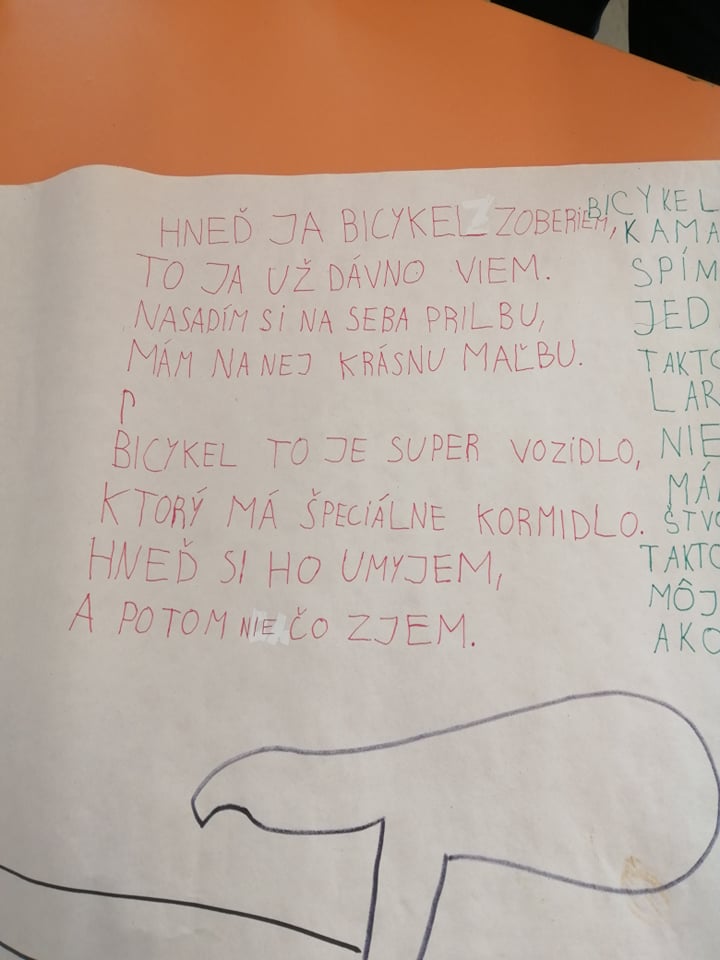 HNEĎ JA BICYKEL ZOBERIEM,
TO JA UŽ DÁVNO VIEM.
NASADÍM SI NA SEBA PRILBU,
MÁM NA NEJ KRÁSNU MAĽBU.
BICYKEL TO JE SUPER VOZIDLO,
KTORÝ MÁ ŠPECIÁLNE KORMIDLO.
HNEĎ SI HO UMYJEM,
A POTOM NIEČO ZJEM.
BICYKEL
KAMA
SPÍM
JED
TAKTO
LAR
NIE
MÁ
ŠTVO
TAKTO
MÔJ
AKO